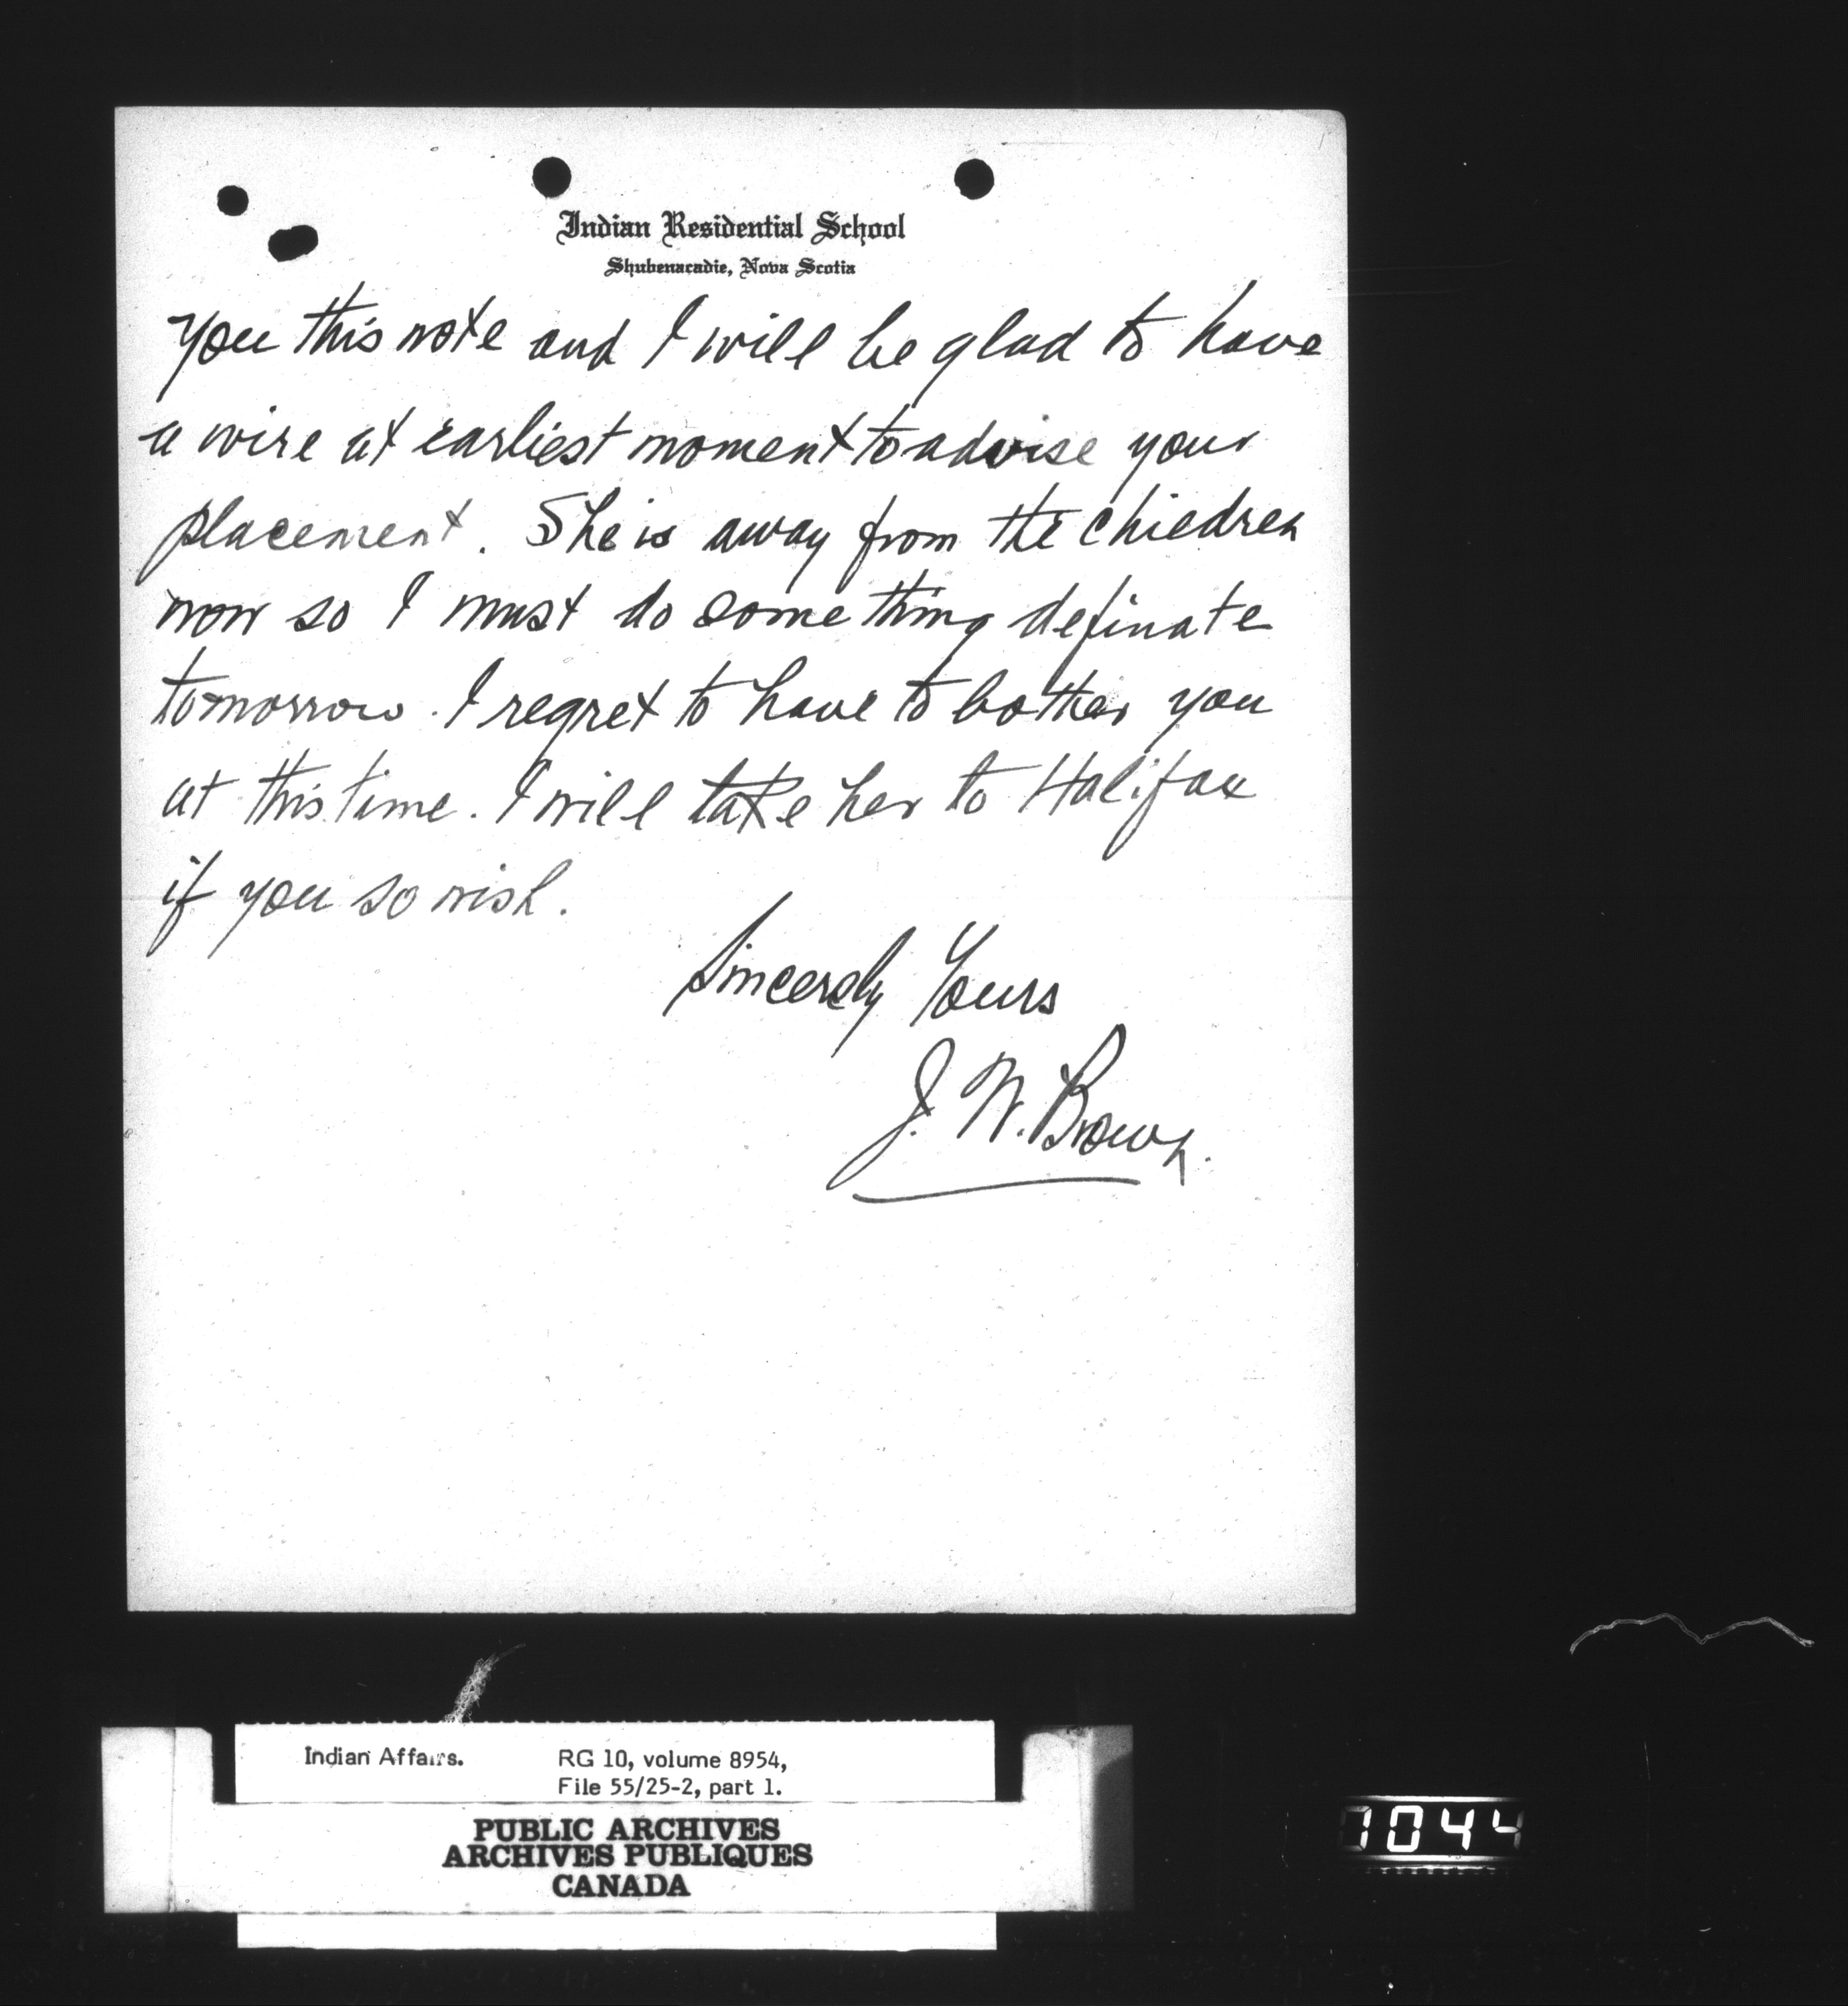 Indian Residential School
Shubenacadie, Nova Scotia
you this note and I will be glad to have
a wire at earliest moment to advise your
placement. She is away from the children
now so I must do something definate
tomorrow. I regret to have to bother you
at this time. I will take her to Halifax
if you so wish.
Sincerely Yours
J. W. Brown.
Indian Affairs.
RG 10, volume 8954,
File 55/25-2, part 1.
PUBLIC ARCHIVES
ARCHIVES PUBLIQUES
CANADA
1044